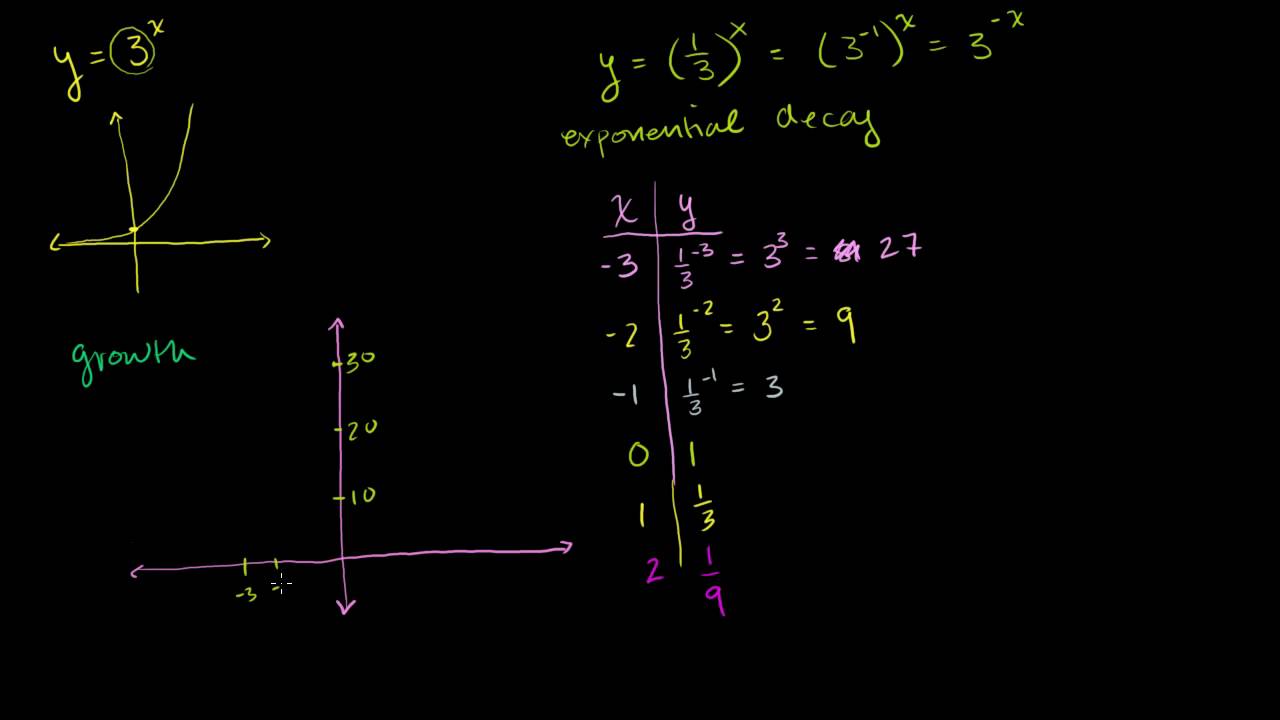 y = 3^x
y = (1/3)^x = (3^-1)^x = 3^-x
exponential decay
x y
-3 1/3^-3 = 3^3 = 27
-2 1/3^-2 = 3^2 = 9
-1 1/3^-1 = 3
0 1
1 1/3
2 1/9
growth
30
20
10
-3 -